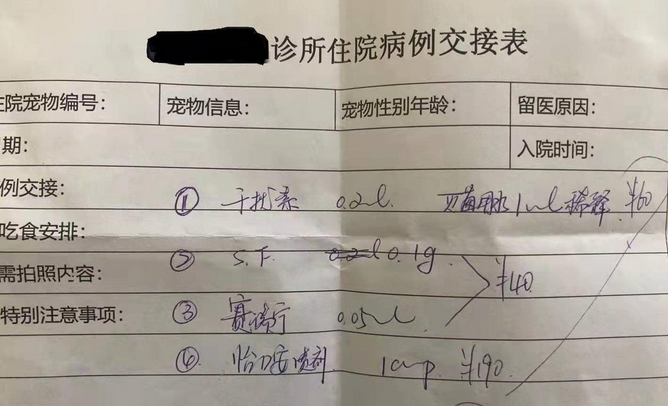 诊所住院病例交接表
住院宠物编号： 宠物信息： 宠物性别年龄： 留医原因：
期： 入院时间：
例交接： ① 干扰素 0.2ml 灭菌用水1ml稀释 ¥60
吃食安排：
② S.F. 0.2l 0.1g ¥140
需拍照内容：
特别注意事项： ③ 赛瑞宁 0.05ml
④ 喷剂 1amp ¥190